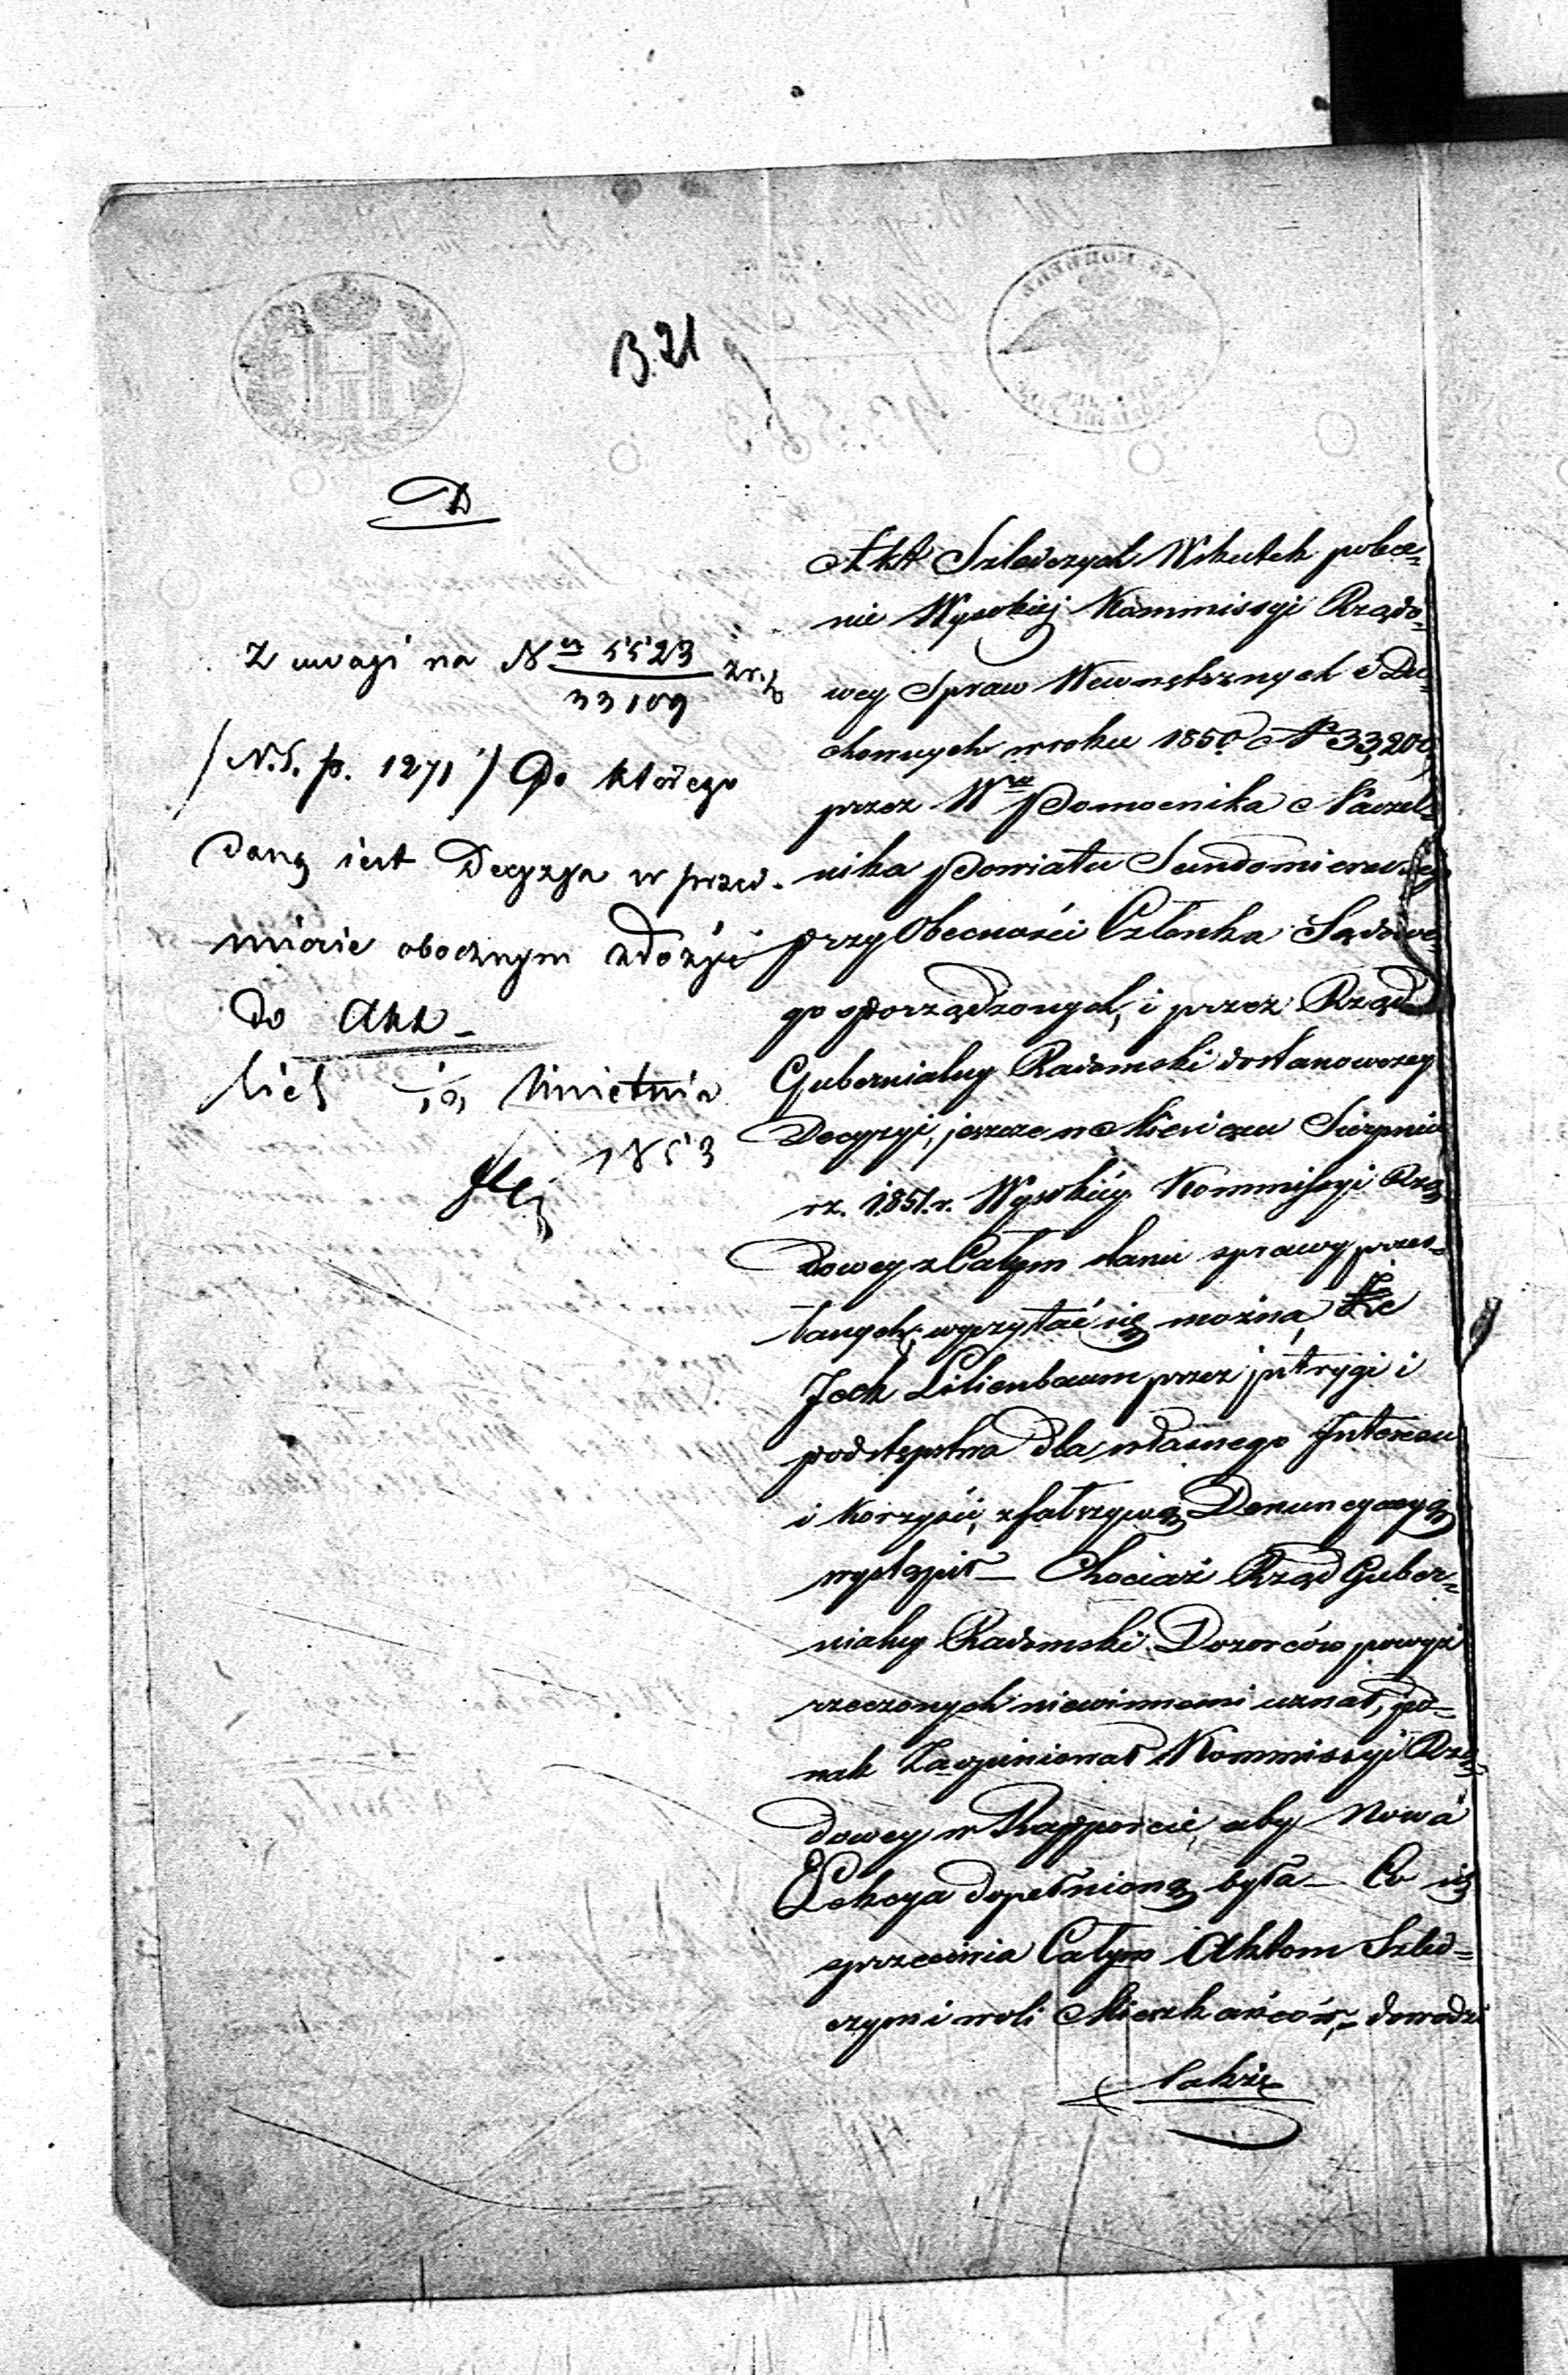 B. 21
D
Z uwagi na N 5523/33109 zr. b
/N.S. p. 1271/ Do którego
daną jest Decyzya w przed-
miocie obocznym złożyć
do Akt -
Kwietnia
1853
Akt Szledczych Wskutek polece-
nie Wysokiej Kommissyi Rządo-
wey Spraw Wewnętrznych i Du-
chownych w roku 1850 N 33,200
przez W Pomocnika Naczel-
nika Powiatu Sandomierskiey
przy Obecności Członka Sądowe-
go sporządzonych, i przez Rząd
Gubernialny Radomski dostanowczey
Decyzyi, jeszcze w Miesiącu Sierpniu
rz. 1851. r. Wysokiey Kommissyi Rzą-
dowey z Całym stanu sprawy przes-
łanych, wyczytać się można, że
Jcek Lilienbaum przez jntrygi i
podstępstwa dla własnego Interesu
i Korzyści, z fałszywą Denuncyacyą
wystąpił — Chociaż Rząd Guber-
nialny Radomski Dozorców powyż
rzeczonych niewinnemi uznał, jed-
nak Zaopiniował Kommissyi Rzą-
dowey w Rapporcie, aby Nowa
Elekcya dopełnioną była — Co się
sprzeciwia Całym Aktom Szled-
czym i woli Mieszkańców, — dowodzi
także